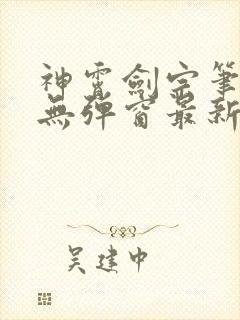 神霄劍宗筆
無彈窗最新
吳建中